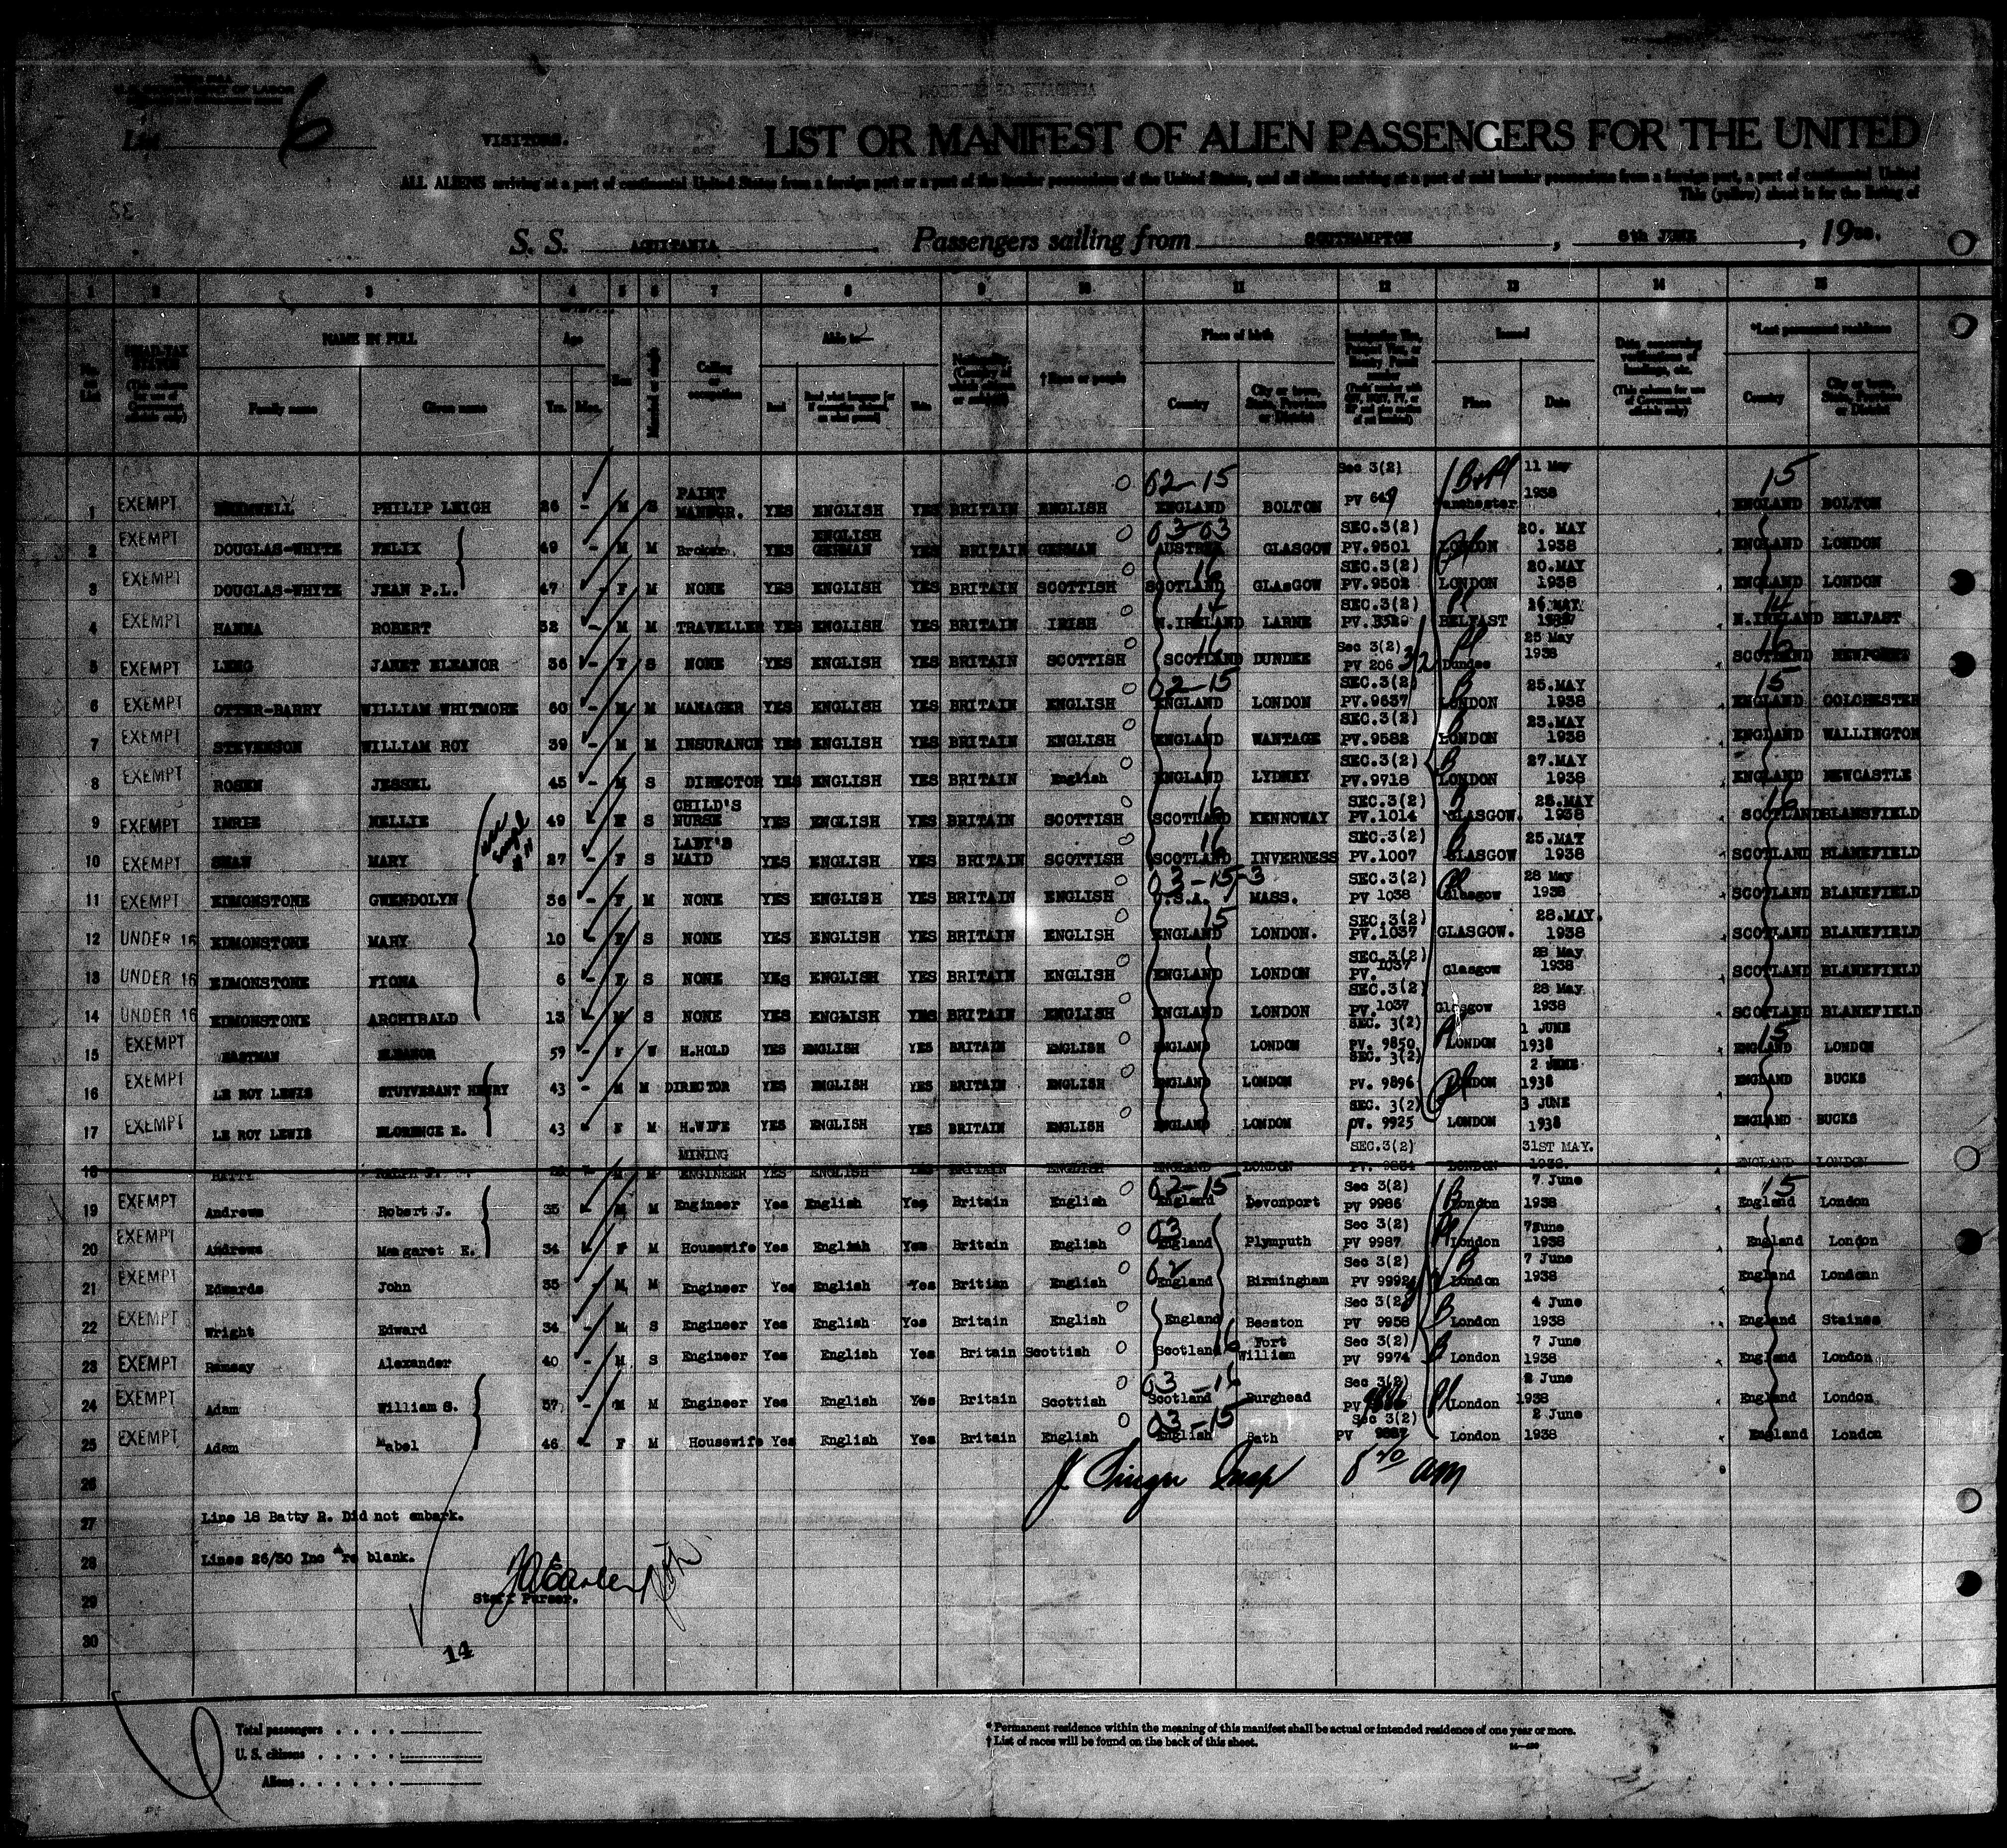 U. S. DEPARTMENT OF LABOR
List 6
VISITORS.
LIST OR MANIFEST OF ALIEN PASSENGERS FOR THE UNITED
ALL ALIENS arriving at a port of continental United States from a foreign port or a port of the insular possessions of the United States, and all aliens arriving at a port of said insular possessions from a foreign port, a port of continental United
This (yellow) sheet is for the listing of
S. S. AQUITANIA Passengers sailing from SOUTHAMPTON, 8th JUNE, 1938.
1 2 3 4 5 6 7 8 9 10 11 12 13 14 15
No. on List
HEAD-TAX STATUS (This column for use of Government officials only)
NAME IN FULL Family name Given name
Age Yrs. Mos.
Sex
Married or single
Calling or occupation
Able to— Read Read what language [or if exemption claimed, on what ground] Write
Nationality. (Country of which citizen or subject)
†Race or people
Place of birth Country City or town, State, Province or District
Issued Place Date
Date concerning verifications of landings, etc. (This column for use of Government officials only)
*Last permanent residence Country City or town, State, Province or District
1 EXEMPT PHILIP LEIGH 26 - M S PAINT MANFGR. YES ENGLISH YES BRITAIN ENGLISH 02-15 ENGLAND BOLTON Sec 3(2) PV 649 Manchester 11 May 1938 15 ENGLAND BOLTON
2 EXEMPT DOUGLAS-WHYTE FELIX 49 - M M Broker YES ENGLISH GERMAN YES BRITAIN GERMAN 03-03 AUSTRIA GLASGOW SEC.3(2) PV.9501 LONDON 20. MAY 1938 ENGLAND LONDON
3 EXEMPT DOUGLAS-WHYTE JEAN P.L. 47 - F M NONE YES ENGLISH YES BRITAIN SCOTTISH 16 SCOTLAND GLASGOW SEC.3(2) PV.9502 LONDON 20.MAY 1938 ENGLAND LONDON
4 EXEMPT HANNA ROBERT 52 - M M TRAVELLER YES ENGLISH YES BRITAIN IRISH 14 N.IRELAND LARNE SEC.3(2) PV.3329 BELFAST 26.MAY 1938 14 N.IRELAND BELFAST
5 EXEMPT LENG JANET ELEANOR 36 - F S NONE YES ENGLISH YES BRITAIN SCOTTISH 16 SCOTLAND DUNDEE Sec 3(2) PV 206 3/2 Dundee 25 May 1938 16 SCOTLAND NEWPORT
6 EXEMPT OTTER-BARRY WILLIAM WHITMORE 60 - M M MANAGER YES ENGLISH YES BRITAIN ENGLISH 02-15 ENGLAND LONDON SEC.3(2) PV.9637 LONDON 25.MAY 1938 15 ENGLAND COLCHESTER
7 EXEMPT STEVENSON WILLIAM ROY 39 - M M INSURANCE YES ENGLISH YES BRITAIN ENGLISH ENGLAND WANTAGE SEC.3(2) PV.9582 LONDON 23.MAY 1938 ENGLAND WALLINGTON
8 EXEMPT ROSEN JESSEL 45 - M S DIRECTOR YES ENGLISH YES BRITAIN English ENGLAND LYDNEY SEC.3(2) PV.9718 LONDON 27.MAY 1938 ENGLAND NEWCASTLE
9 EXEMPT IMRIE NELLIE 49 - F S CHILD'S NURSE YES ENGLISH YES BRITAIN SCOTTISH 16 SCOTLAND KENNOWAY SEC.3(2) PV.1014 GLASGOW. 25.MAY 1938 16 SCOTLAND BLANEFIELD
10 EXEMPT SHAW MARY 27 - F S LADY'S MAID YES ENGLISH YES BRITAIN SCOTTISH 16 SCOTLAND INVERNESS SEC.3(2) PV.1007 GLASGOW 25.MAY 1938 SCOTLAND BLANEFIELD
11 EXEMPT EDMONSTONE GWENDOLYN 36 - F M NONE YES ENGLISH YES BRITAIN ENGLISH 03-15-3 U.S.A. MASS. SEC.3(2) PV 1038 Glasgow 28 May 1938 SCOTLAND BLANEFIELD
12 UNDER 16 EDMONSTONE MARY 10 - F S NONE YES ENGLISH YES BRITAIN ENGLISH 15 ENGLAND LONDON. SEC.3(2) PV.1037 GLASGOW. 28.MAY. 1938 SCOTLAND BLANEFIELD
13 UNDER 16 EDMONSTONE FIONA 6 - F S NONE YES ENGLISH YES BRITAIN ENGLISH ENGLAND LONDON SEC.3(2) PV. 1037 Glasgow 28 May 1938 SCOTLAND BLANEFIELD
14 UNDER 16 EDMONSTONE ARCHIBALD 13 - M S NONE YES ENGLISH YES BRITAIN ENGLISH ENGLAND LONDON SEC.3(2) PV.1037 Glasgow 28 May 1938 SCOTLAND BLANEFIELD
15 EXEMPT EASTMAN ELEANOR 59 - F W H.HOLD YES ENGLISH YES BRITAIN ENGLISH ENGLAND LONDON SEC. 3(2) PV. 9850 LONDON 1 JUNE 1938 15 ENGLAND LONDON
16 EXEMPT LE ROY LEWIS STUYVESANT HENRY 43 - M M DIRECTOR YES ENGLISH YES BRITAIN ENGLISH ENGLAND LONDON SEC. 3(2) PV. 9896 LONDON 2 JUNE 1938 ENGLAND BUCKS
17 EXEMPT LE ROY LEWIS FLORENCE E. 43 F M H.WIFE YES ENGLISH YES BRITAIN ENGLISH ENGLAND LONDON SEC. 3(2) PV. 9925 LONDON 3 JUNE 1938 ENGLAND BUCKS
18 BATTY RALPH F. M M MINING ENGINEER YES ENGLISH YES BRITAIN ENGLISH ENGLAND LONDON SEC.3(2) PV. 9834 LONDON 31ST MAY. 1938. ENGLAND LONDON
19 EXEMPT Andrews Robert J. 35 M M Engineer Yes English Yes Britain English 02-15 England Devonport Sec 3(2) PV 9986 London 7 June 1938 15 England London
20 EXEMPT Andrews Margaret E. 34 F M Housewife Yes English Yes Britain English 03 England Plymputh Sec 3(2) PV 9987 London 7June 1938 England London
21 EXEMPT Edwards John 35 - M M Engineer Yes English Yes Britian English 02 England Birmingham Sec 3(2) PV 9992 London 7 June 1938 England Londonn
22 EXEMPT Wright Edward 34 - M S Engineer Yes English Yes Britain English England Beeston Sec 3(2) PV 9958 London 4 June 1938 England Staines
23 EXEMPT Ramsay Alexander 40 - M S Engineer Yes English Yes Britain Scottish Scotland 16 Fort William Sec 3(2) PV 9974 London 7 June 1938 England London
24 EXEMPT Adam William S. 57 - M M Engineer Yes English Yes Britain Scottish 03-16 Scotland Burghead Sec 3(2) PV 9886 London 2 June 1938 England London
25 EXEMPT Adam Mabel 46 - F M Housewife Yes English Yes Britain English 03-15 English Bath Sec 3(2) PV 9887 London 2 June 1938 England London
26
27 Line 18 Batty R. Did not embark.
28 Lines 26/30 Inc Are blank.
29 Staff Purser.
30
14
Total passengers
U. S. citizens
Aliens
* Permanent residence within the meaning of this manifest shall be actual or intended residence of one year or more.
† List of races will be found on the back of this sheet.